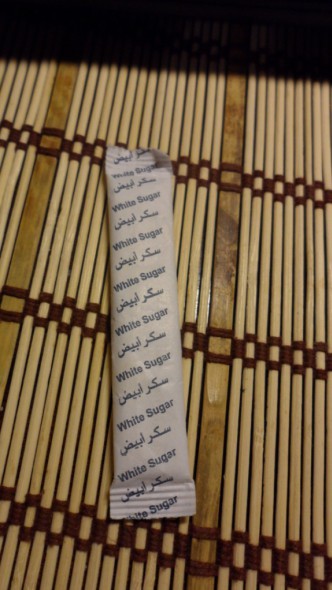 سكر أبيض
White Sugar
سكر أبيض
White Sugar
سكر أبيض
White Sugar
سكر أبيض
White Sugar
سكر أبيض
White Sugar
سكر أبيض
White Sugar
سكر أبيض
White Sugar
سكر أبيض
White Sugar
سكر أبيض
White Sugar